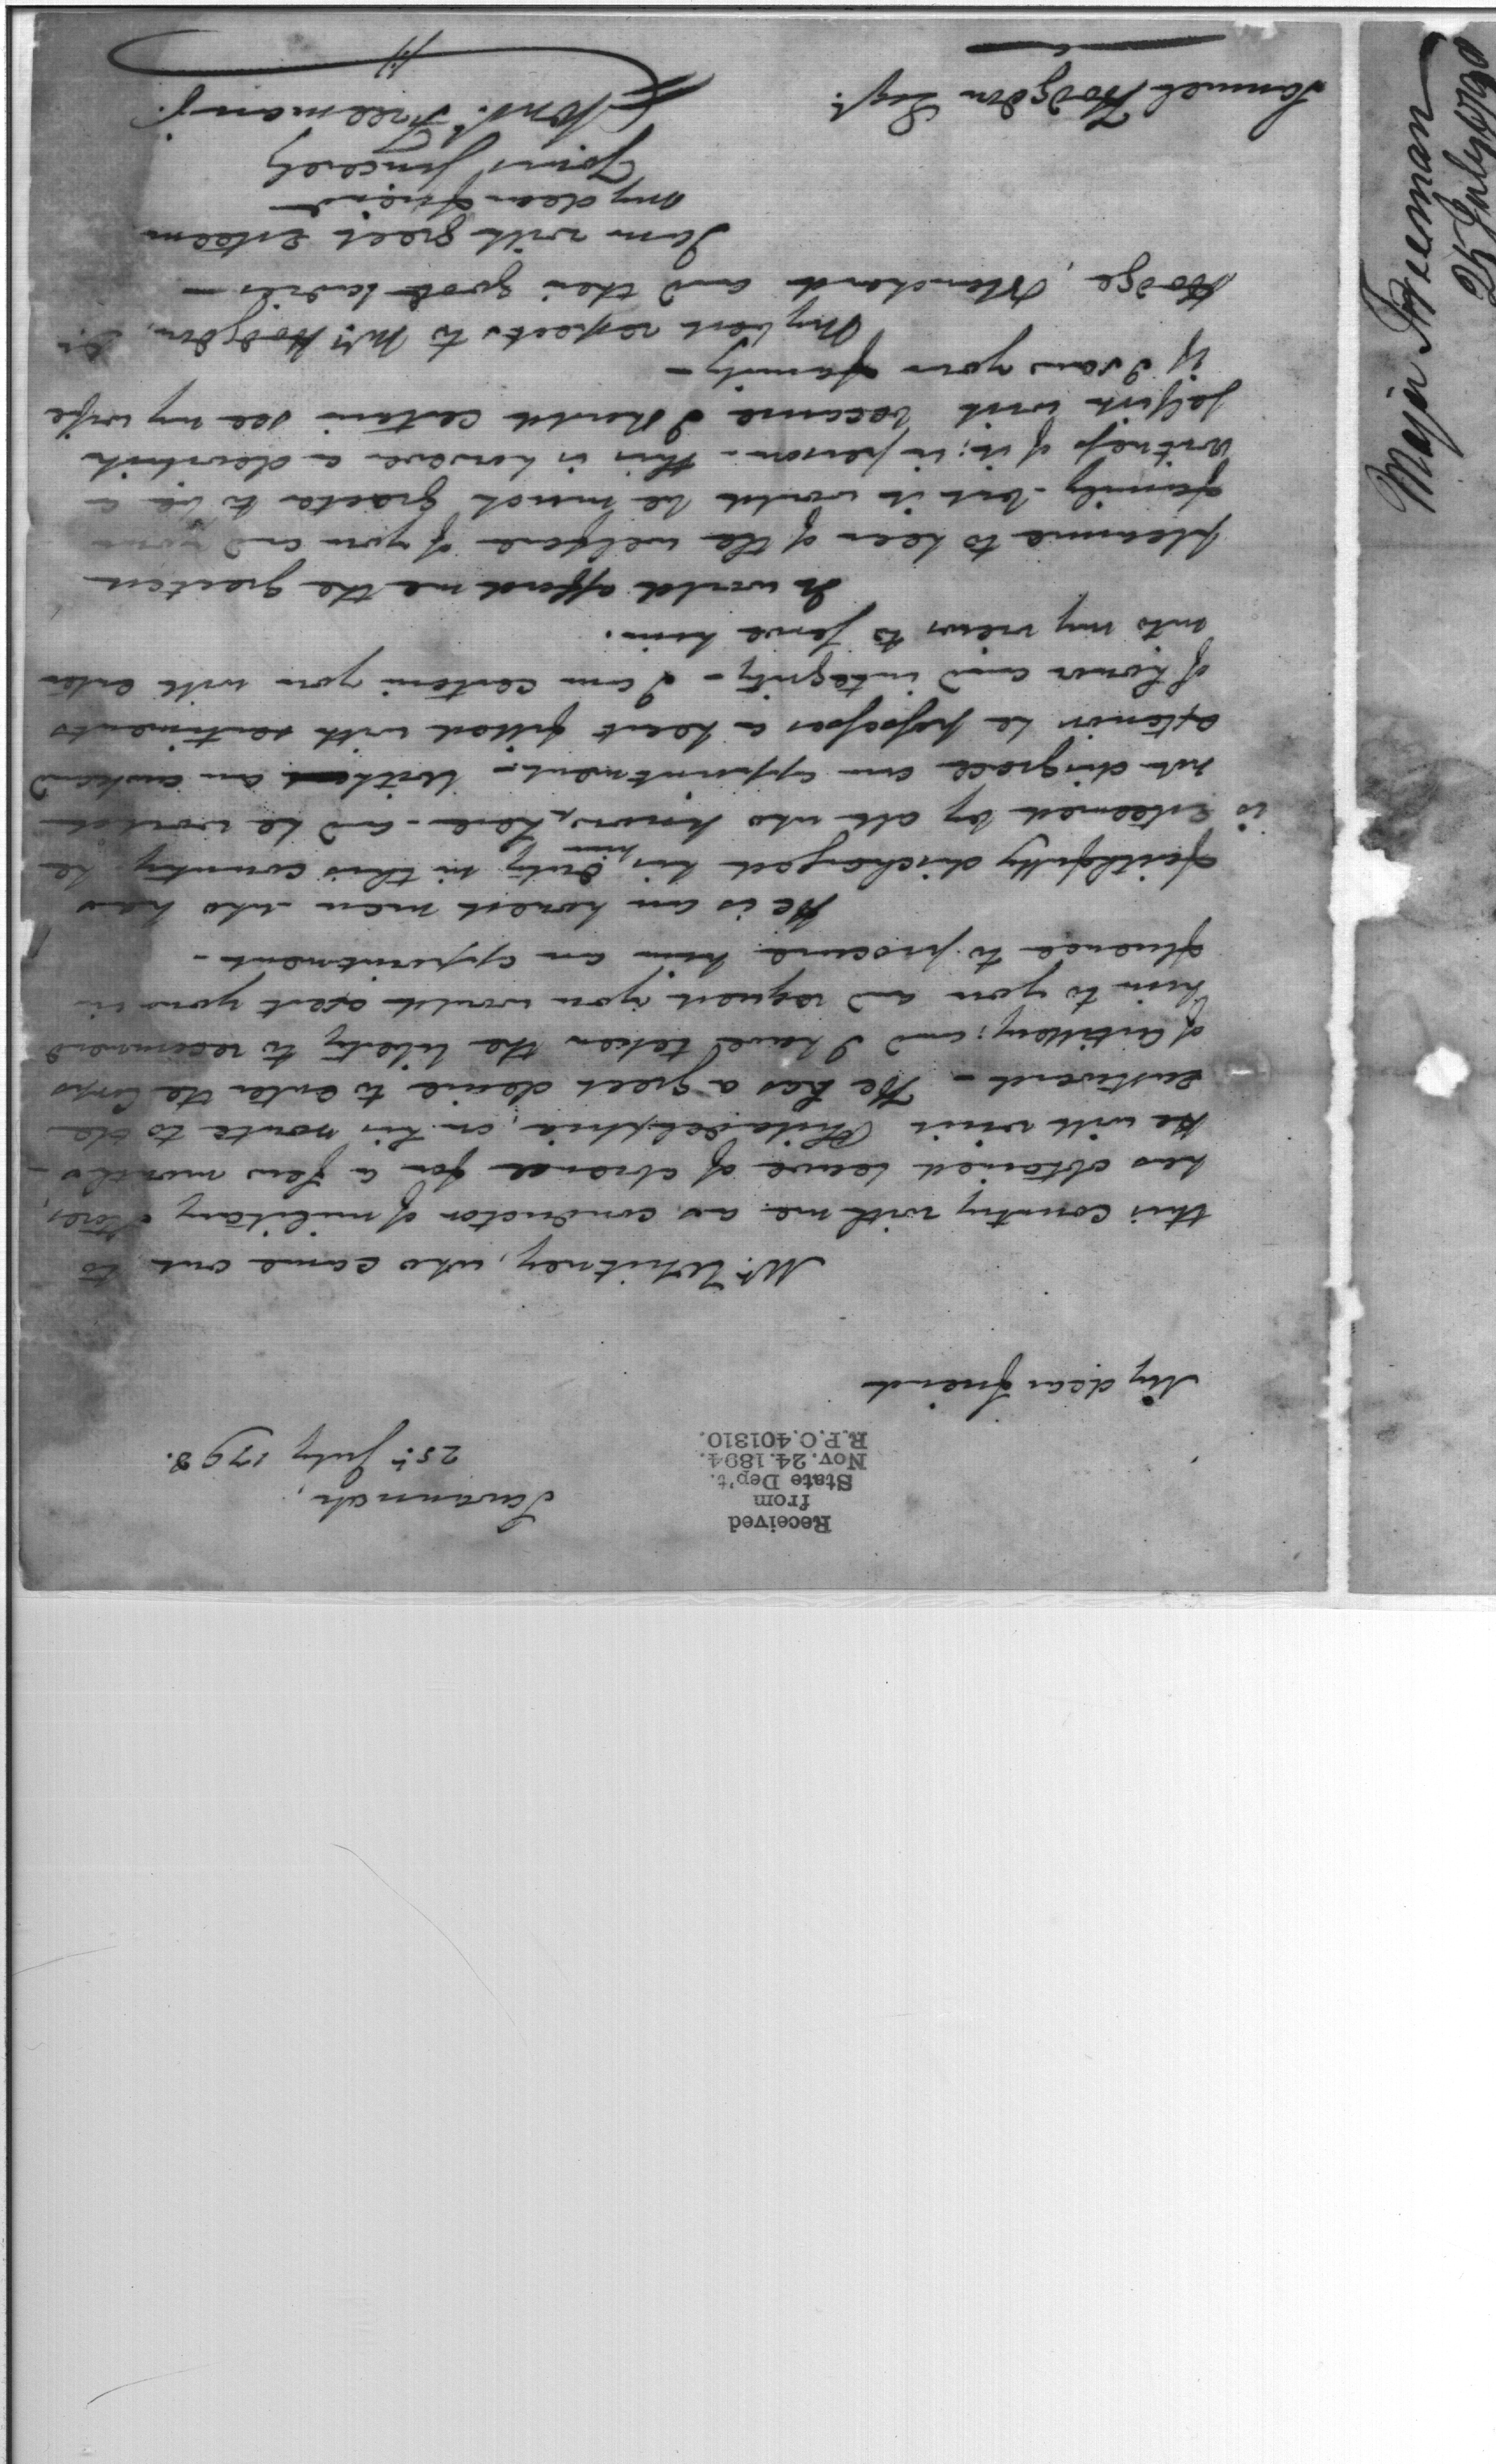 Received
from
State Dep't.
Nov. 24. 1894.
R.P.O. 401310.
Savannah,
25th July 1798.
My dear friend
Mr. Whitney, who came out to
this country with me as conductor of military stores,
has obtained leave of absence for a few months -
he will visit Philadelphia, on his route to the
eastward - He has a great desire to enter the Corps
of Artillery; and I have taken the liberty to recommend
him to you and request you would exert your in
fluence to procure him an appointment -
He is an honest man who has
faithfully discharged his duty in this country he
is esteemed by all who knows him, here - and he would
not disgrace an appointment - With an awkward
exterior he possesses a heart filled with sentiments
of honor and integrity - I am certain you will enter
into my views to serve him.
It would afford me the greatest
pleasure to hear of the welfare of you and your
family - but it would be much greater to be a
witness of it; in person - this is however a
selfish wish because I should certain see my wife
if I saw your family -
My best respects to Mrs. Hodgdon,
Hodge, Blanchard and their good ladies -
I am with great esteem
my dear friend
Yours sincerely
Const. Freeman Jr.
Samuel Hodgdon Esqr.
Major Freeman
25 July 1798